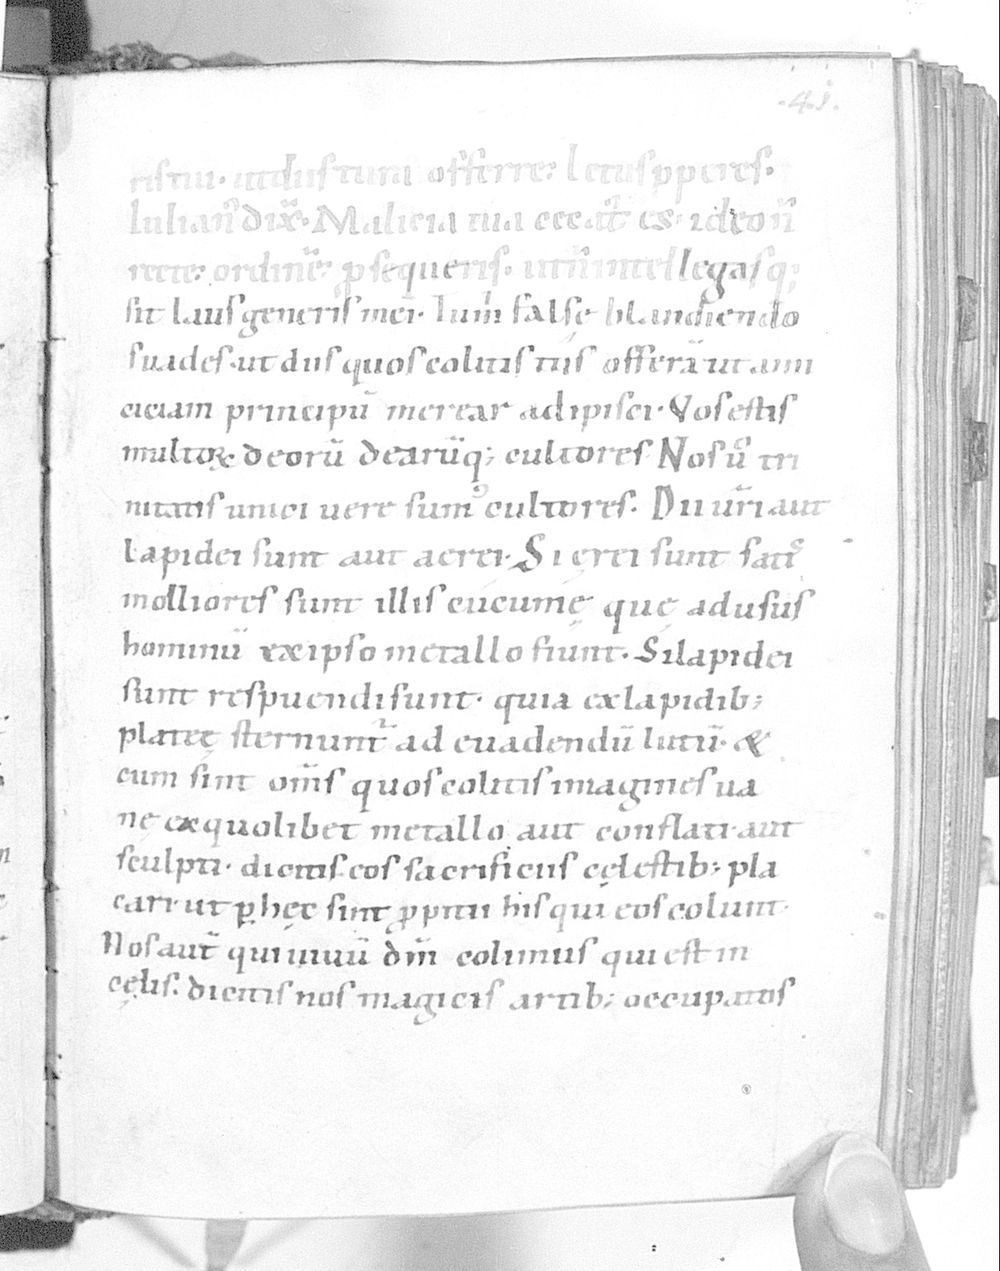 ·41·
ristui· ut dus tum offerre: letus pperes·
Iulian̄ dix̄· Malicia tua cecat̄ es· ideo n̄
recte: ordinē: ꝑsequeris· ut n̄ intellegas q;
sit laus generis mei· Tu m̄ false blandiendo
suades· ut diis quos colitis tus offerā ut ami
ciciam principū merear adipisci· Vos estis
multoꝝ deorū dearūq; cultores Nos ū tri
nitatis unici vere sumꝰ cultores· Dii ur̄i aut
lapidei sunt aut aerei· Si ęrei sunt satis
molliores sunt illis cucumę quę ad usus
hominū ex ipso metallo fiunt· Si lapidei
sunt respuendi sunt· quia ex lapidib;
plateę sternunt̄ ad euadendū lutū· &
cum sint om̄s quos colitis imagines ua
nę ex quolibet metallo aut conflati aut
sculpti· dicitis eos sacrificiis cęlestib; pla
cari· ut ꝑ hęc sint ꝓpitii his qui eos colunt·
Nos aut̄ qui uiuū dm̄ colimus qui est in
cęlis· dicitis nos magicis artib; occupatos